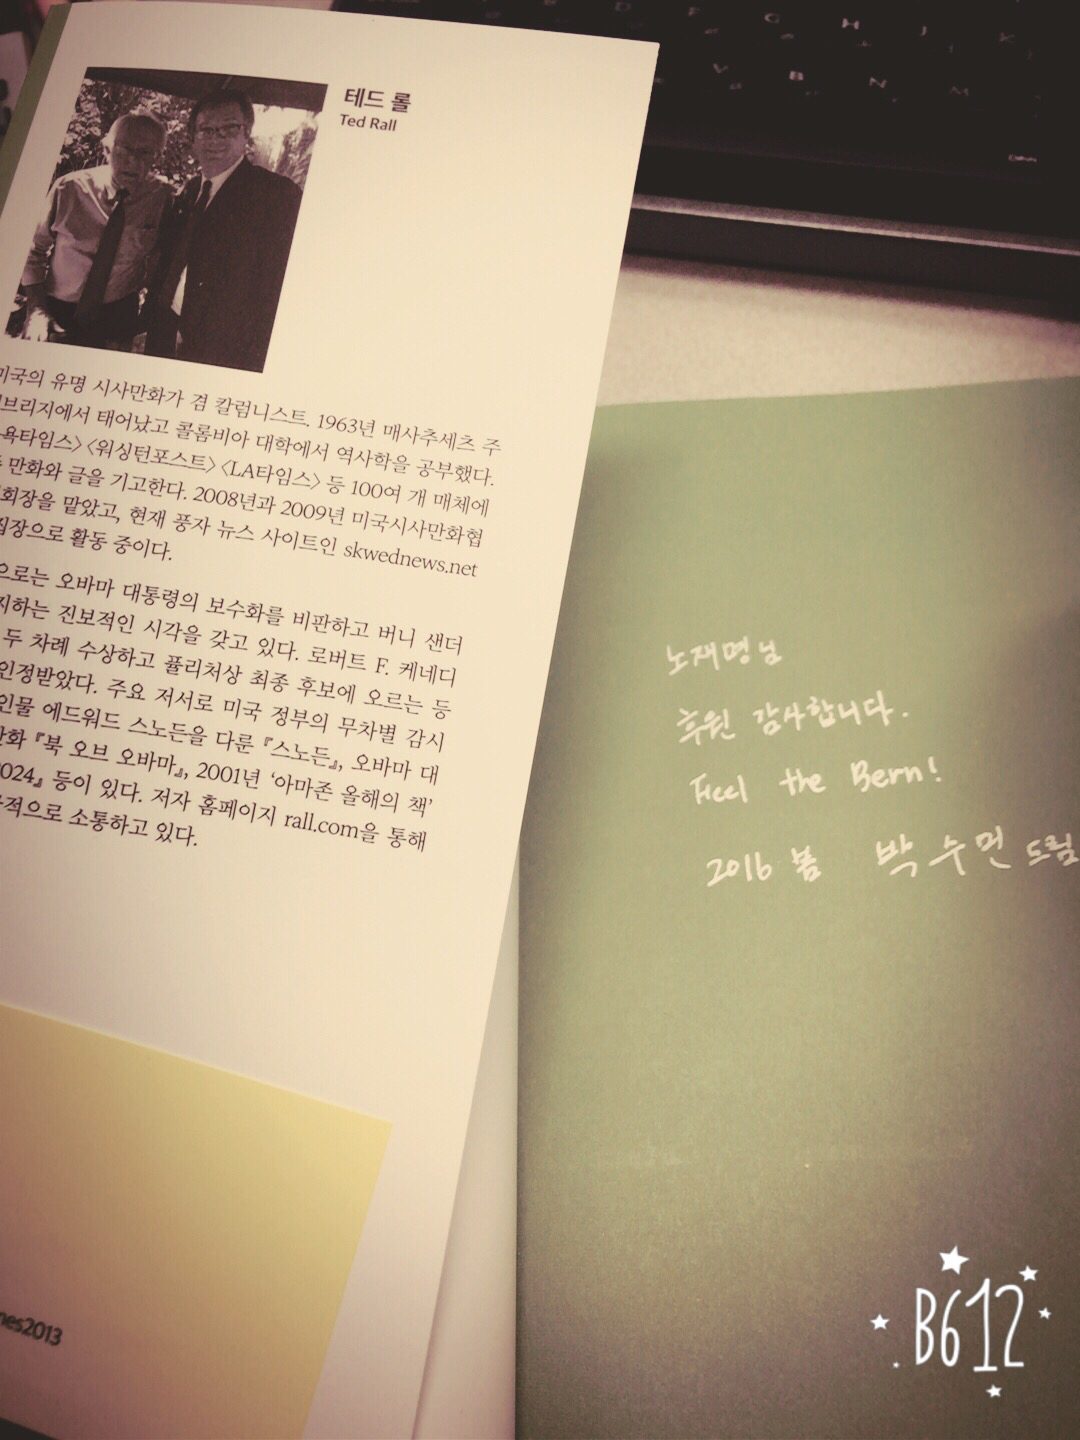 테드 롤
Ted Rall
미국의 유명 시사만화가 겸 칼럼니스트. 1963년 매사추세츠 주
브리지에서 태어났고 콜롬비아 대학에서 역사학을 공부했다.
욕타임스〉〈워싱턴포스트〉〈LA타임스〉 등 100여 개 매체에
만화와 글을 기고한다. 2008년과 2009년 미국시사만화협
회장을 맡았고, 현재 풍자 뉴스 사이트인 skwednews.net
집장으로 활동 중이다.
으로는 오바마 대통령의 보수화를 비판하고 버니 샌더
지하는 진보적인 시각을 갖고 있다. 로버트 F. 케네디
두 차례 수상하고 퓰리처상 최종 후보에 오르는 등
인정받았다. 주요 저서로 미국 정부의 무차별 감시
인물 에드워드 스노든을 다룬 『스노든』, 오바마 대
만화 『북 오브 오바마』, 2001년 '아마존 올해의 책'
024』 등이 있다. 저자 홈페이지 rall.com을 통해
적으로 소통하고 있다.
nes2013
노재명님
후원 감사합니다.
Feel the Bern!
2016 봄 박수민 드림
B612